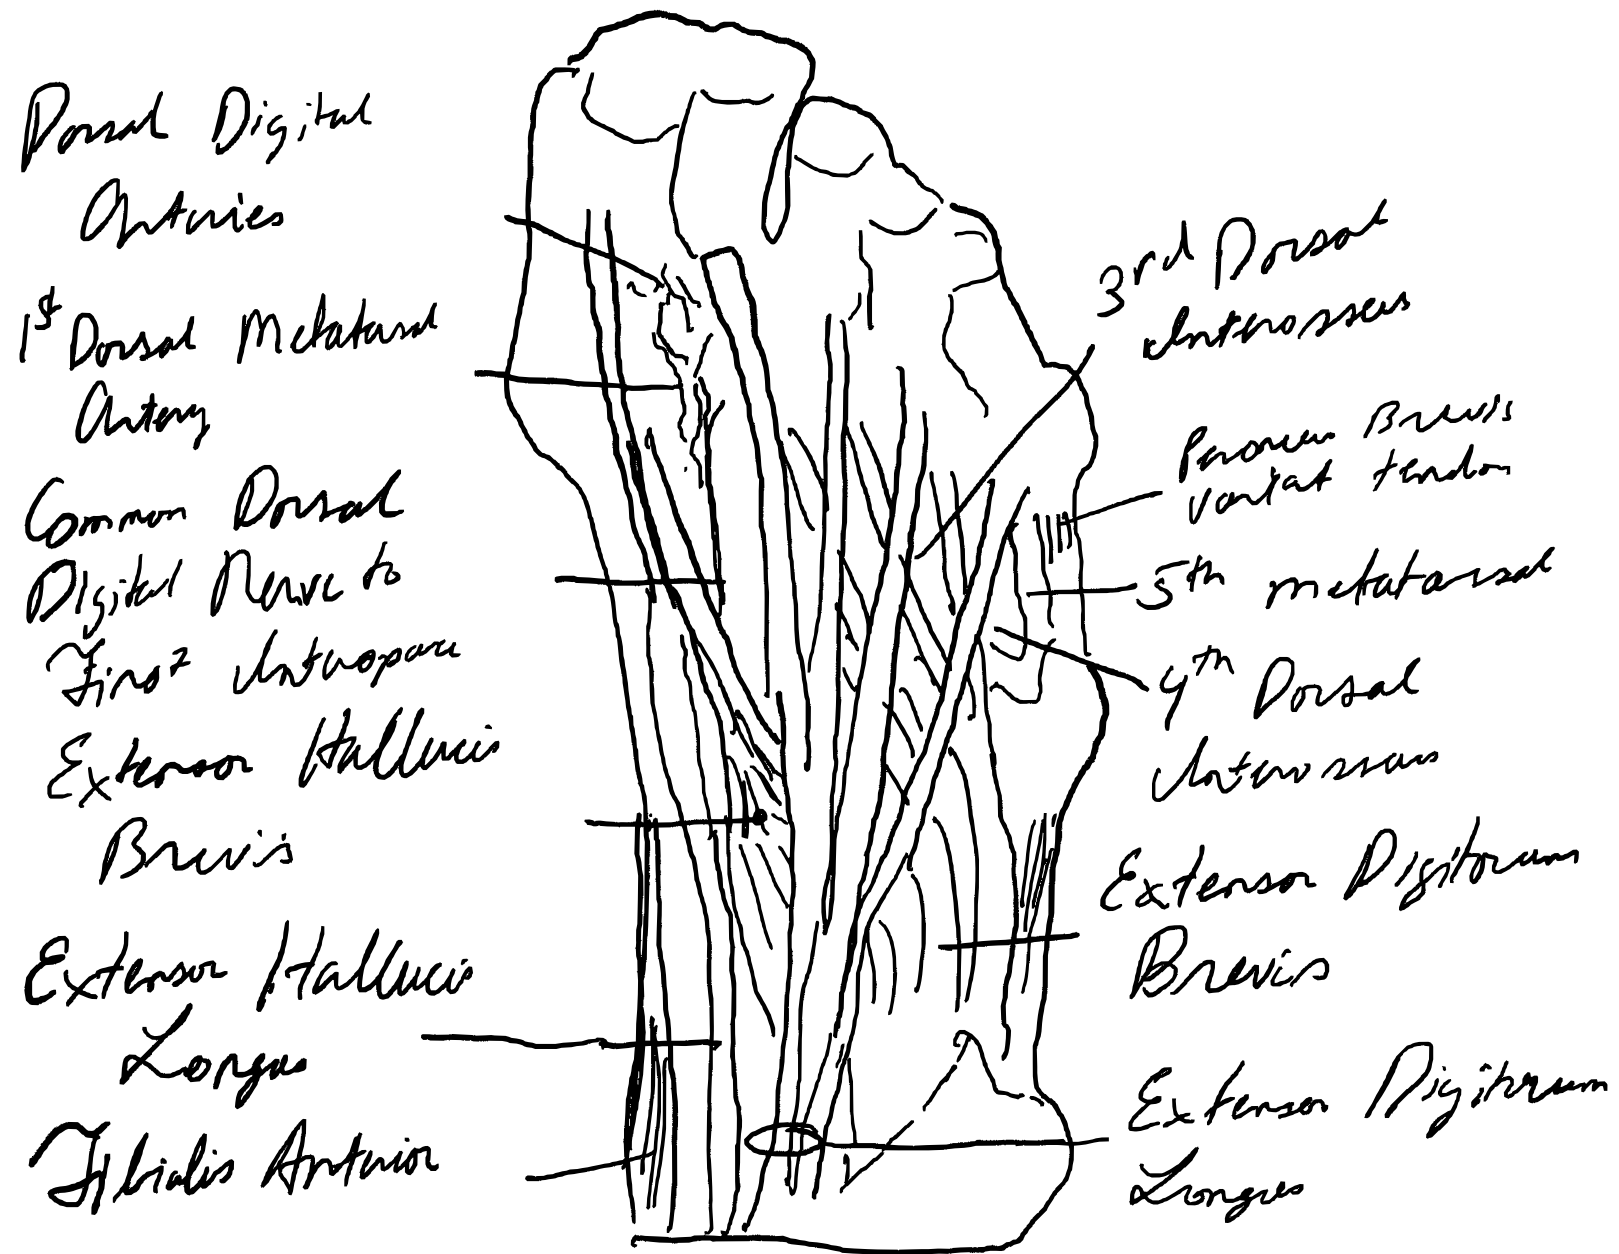 Dorsal Digital
Arteries
1st Dorsal Metatarsal
Artery
Common Dorsal
Digital Nerve to
First Interspace
Extensor Hallucis
Brevis
Extensor Hallucis
Longus
Tibialis Anterior
3rd Dorsal
Interosseus
Peroneus Brevis
variat tendon
5th metatarsal
4th Dorsal
Interosseus
Extensor Digitorum
Brevis
Extensor Digitorum
Longus